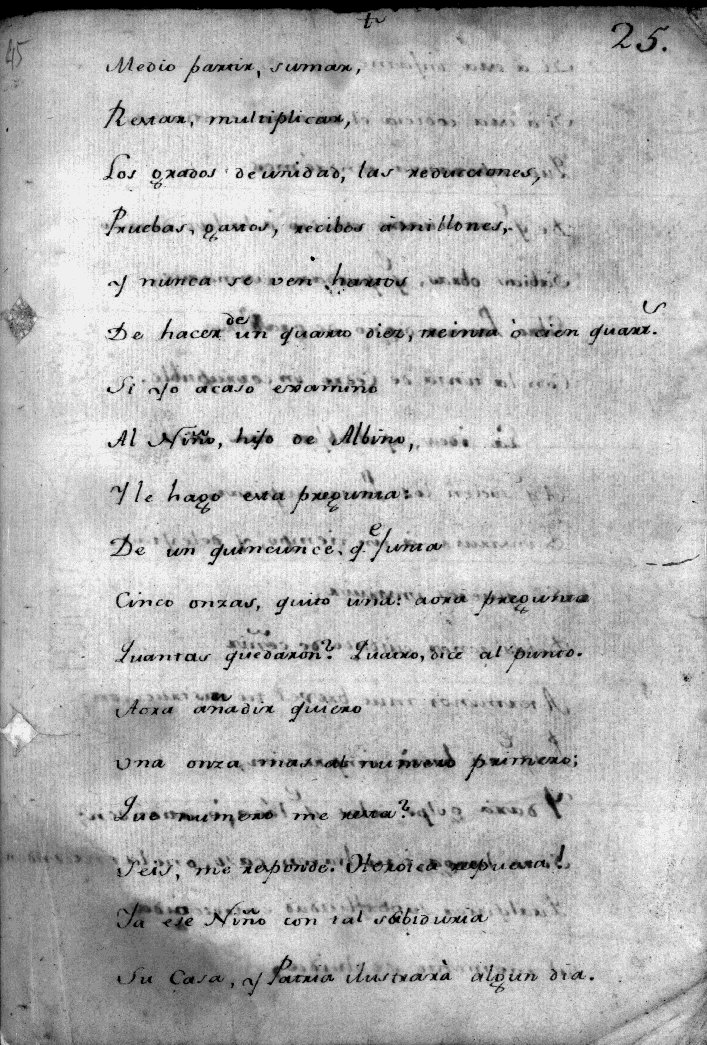 25.
45
Medio partir, sumar,
Restar, multiplicar,
Los grados de unidad, las reducciones,
Pruebas, gastos, recibos á millones,
y nunca se ven hartos
De hacer de un quarto diez, treinta ò cien quart.s
Si yo acaso examino
Al Niño, hijo de Albino,
Y le hago esta pregunta:
De un quincunce, q.e junta
Cinco onzas, quito una: aora pregunta
Quantas quedaron? Quatro, dice al punto.
Aora añadir quiero
una onza mas al numero primero;
Que numero me resta?
Seis, me responde. Heroica repuesta!
Ya ese Niño con tal sabiduria
Su Casa, y Patria ilustrarà algun dia.